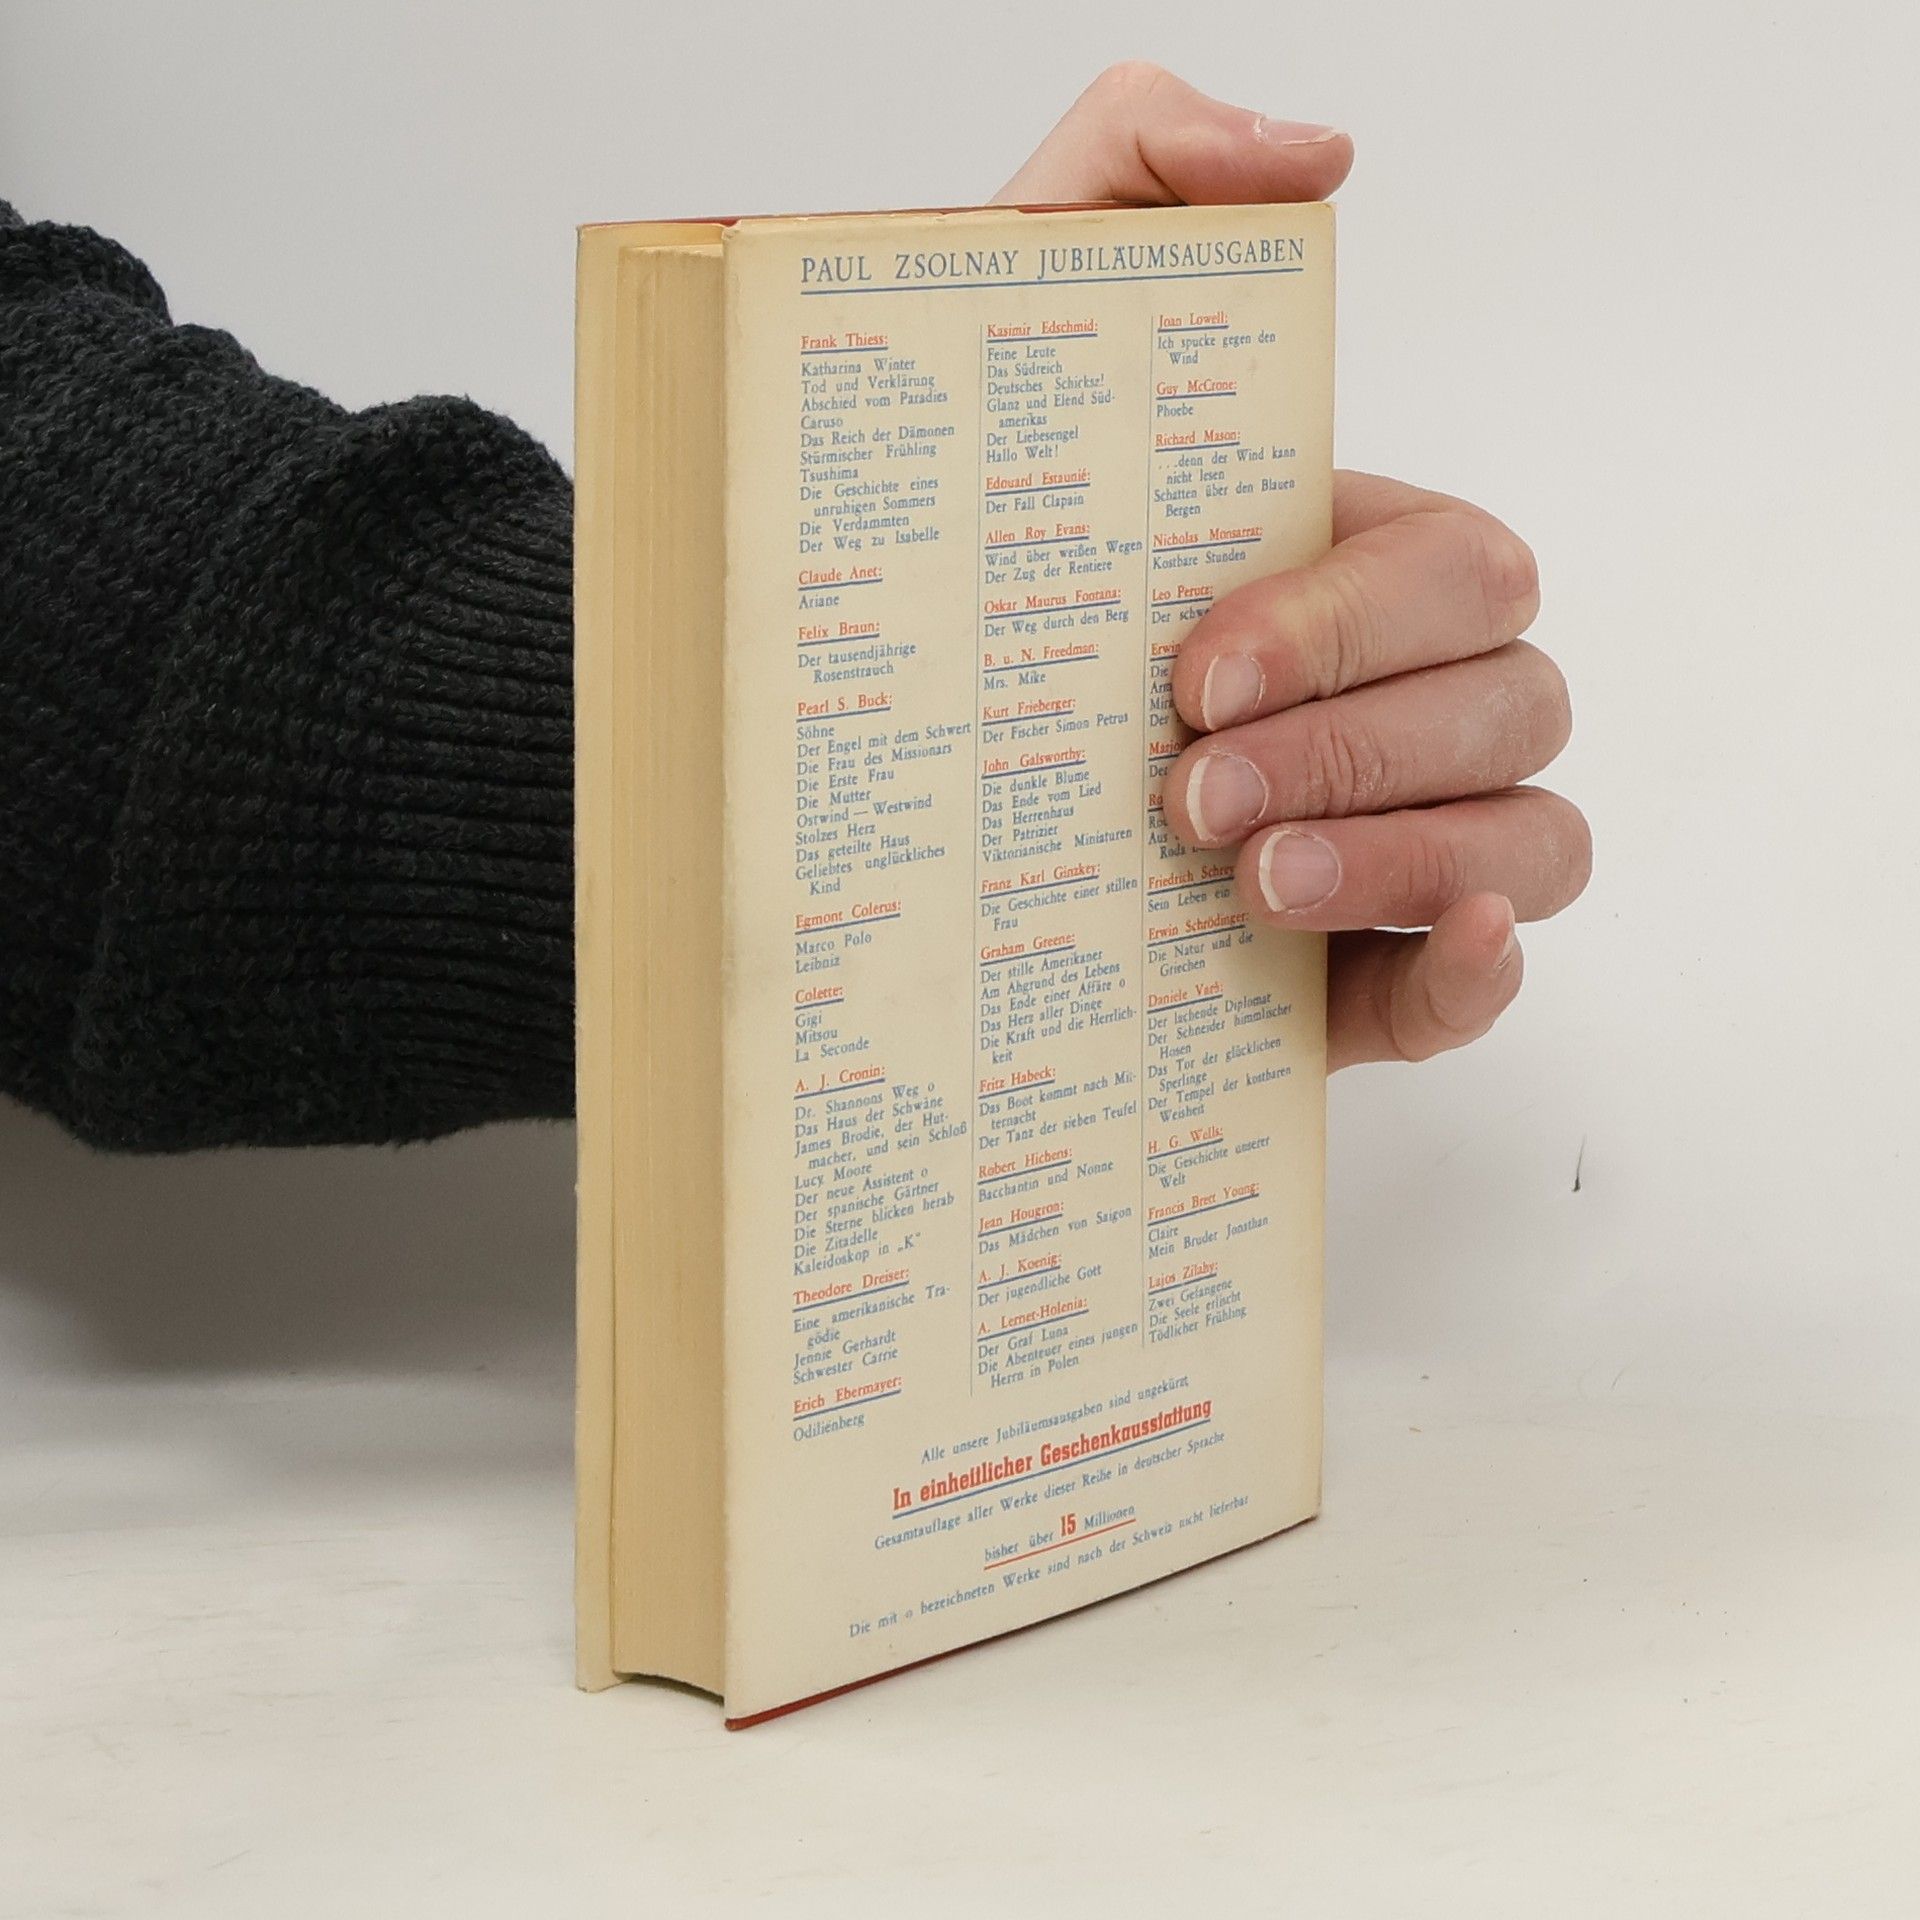 PAUL ZSOLNAY JUBILÄUMSAUSGABEN
Frank Thiess:
Katharina Winter
Tod und Verklärung
Abschied vom Paradies
Caruso
Das Reich der Dämonen
Stürmischer Frühling
Tsushima
Die Geschichte eines
unruhigen Sommers
Die Verdammten
Der Weg zu Isabelle
Claude Anet:
Ariane
Felix Braun:
Der tausendjährige
Rosenstrauch
Pearl S. Buck:
Söhne
Der Engel mit dem Schwert
Die Frau des Missionars
Die Erste Frau
Die Mutter
Ostwind — Westwind
Stolzes Herz
Das geteilte Haus
Geliebtes unglückliches
Kind
Egmont Colerus:
Marco Polo
Leibniz
Colette:
Gigi
Mitsou
La Seconde
A. J. Cronin:
Dr. Shannons Weg o
Das Haus der Schwäne
James Brodie, der Hut-
macher, und sein Schloß
Lucy Moore
Der neue Assistent o
Der spanische Gärtner
Die Sterne blicken herab
Die Zitadelle
Kaleidoskop in „K“
Theodore Dreiser:
Eine amerikanische Tra-
gödie
Jennie Gerhardt
Schwester Carrie
Erich Ebermayer:
Odilienberg
Kasimir Edschmid:
Feine Leute
Das Südreich
Deutsches Schicksal
Glanz und Elend Süd-
amerikas
Der Liebesengel
Hallo Welt!
Edouard Estaunié:
Der Fall Clapain
Allen Roy Evans:
Wind über weißen Wegen
Der Zug der Rentiere
Oskar Maurus Fontana:
Der Weg durch den Berg
B. u. N. Freedman:
Mrs. Mike
Kurt Frieberger:
Der Fischer Simon Petrus
John Galsworthy:
Die dunkle Blume
Das Ende vom Lied
Das Herrenhaus
Der Patrizier
Viktorianische Miniaturen
Franz Karl Ginzkey:
Die Geschichte einer stillen
Frau
Graham Greene:
Der stille Amerikaner
Am Abgrund des Lebens
Das Ende einer Affäre o
Das Herz aller Dinge
Die Kraft und die Herrlich-
keit
Fritz Habeck:
Das Boot kommt nach Mit-
ternacht
Der Tanz der sieben Teufel
Robert Hichens:
Bacchantin und Nonne
Jean Hougron:
Das Mädchen von Saigon
A. J. Koenig:
Der jugendliche Gott
A. Lernet-Holenia:
Der Graf Luna
Die Abenteuer eines jungen
Herrn in Polen
Joan Lowell:
Ich spucke gegen den
Wind
Guy McCrone:
Phoebe
Richard Mason:
...denn der Wind kann
nicht lesen
Schatten über den Blauen
Bergen
Nicholas Monsarrat:
Kostbare Stunden
Leo Perutz:
Der
Erwin
Die
Der
Aus
Roda
Friedrich
Sein Leben ein
Erwin Schrödinger:
Die Natur und die
Griechen
Daniele Varè:
Der lachende Diplomat
Der Schneider himmlischer
Hosen
Das Tor der glücklichen
Sperlinge
Der Tempel der kostbaren
Weisheit
H. G. Wells:
Die Geschichte unserer
Welt
Francis Brett Young:
Claire
Mein Bruder Jonathan
Lajos Zilahy:
Zwei Gefangene
Die Seele erlischt
Tödlicher Frühling
Alle unsere Jubiläumsausgaben sind ungekürzt
In einheitlicher Geschenkausstattung
Gesamtauflage aller Werke dieser Reihe in deutscher Sprache
bisher über 15 Millionen
Die mit o bezeichneten Werke sind nach der Schweiz nicht lieferbar